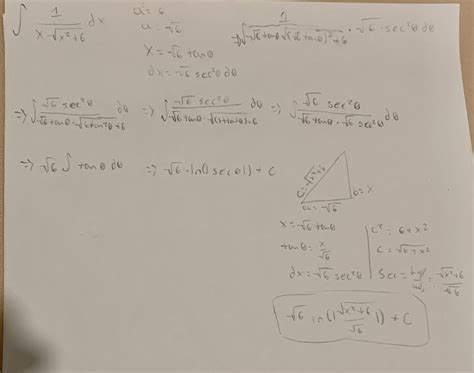 ∫ 1/(x·√(x²+6)) dx
a² = 6
a = √6
x = √6 tanθ
dx = √6 sec²θ dθ
⇒ ∫ 1/(√6 tanθ √((√6 tanθ)²+6)) · √6 · sec²θ dθ
⇒ ∫ √6 sec²θ/(√6 tanθ · √(6tan²θ+6)) dθ ⇒ ∫ √6 sec²θ/(√6 tanθ · √((1+tan²θ)·6)) dθ ⇒ ∫ √6 sec²θ/(√6 tanθ · √6 sec²θ) dθ
⇒ √6 ∫ tanθ dθ ⇒ √6 · ln(|secθ|) + C
c = √(x²+6)
b = x
a = √6
x = √6 tanθ
tanθ = x/√6
dx = √6 sec²θ
c² = 6 + x²
c = √(6+x²)
Sec = hyp/adj = √(x²+6)/√6
√6 ln(|√(x²+6)/√6|) + C